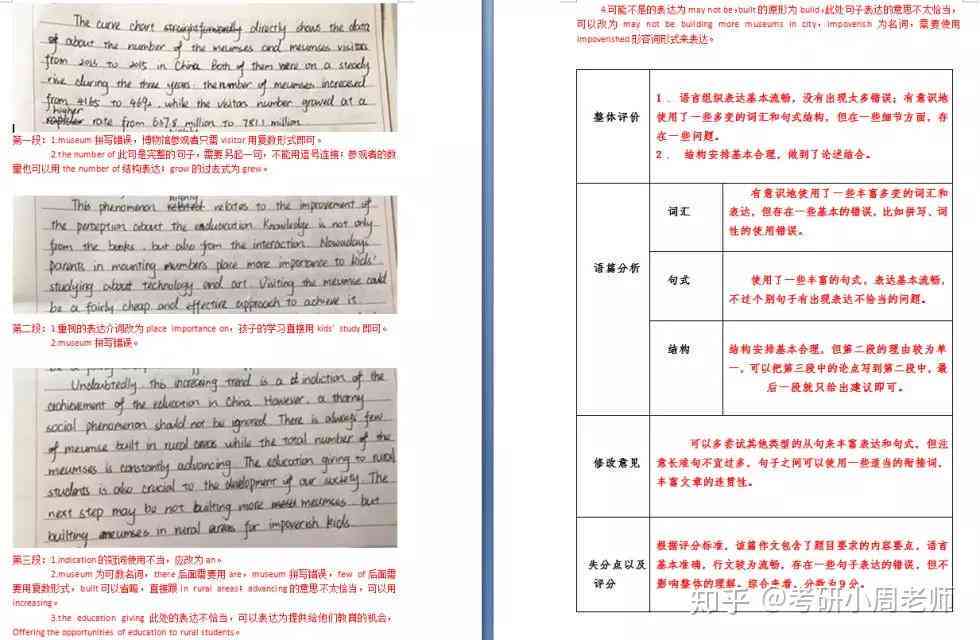 The curve chart directly shows the data
of about the number of the meumses and meumses visitor
from 2013 to 2015 in China. Both of them were on a steady
rise during the three years. the number of meumses increased
from 4165 to 4692, while the visitors number growed at a
higher
rate from 637.8 million to 781.1 million.
第一段：1.museum 拼写错误，博物馆参观者只需 visitor 用复数形式即可。
2.the number of 此句是完整的句子，需要另起一句，不能用逗号连接；参观者的数
量也可以用 the number of 结构表达；grow 的过去式为 grew。
highly
This phenomenon relates to the improvement of
the perception about the eduducation. Knowledge is not only
from the books, but also from the interaction. Nowadays
parents in mounting numbers place more importance to kids'
studying about technology and art. Visiting the meumse could
be a fairly cheap and effective approach to achieve it.
第二段：1.重视的表达介词改为 place importance on，孩子的学习直接用 kids' study 即可。
2.museum 拼写错误。
Undoubtedly, this increasing trend is a indiction of the
achievement of the education in China. However, a thorny
social phenomenon should not be ignored. There is always few
of meumse built in rural areas while the total number of the
meumses is constantly advancing. The education giving to rural
students is also crucial to the development of our society. The
next step may be not builting more meumses, but
builting meumses in rural areas for impoverish kids.
第三段：1.indication 的冠词使用不当，应改为 an。
2.museum 为可数名词，there 后面需要用 are，museum 拼写错误，few of 后面需
要用复数形式，built 可以省略，直接跟 in rural areas；advancing 的意思不太恰当，可以用
increasing。
3.the education giving 此处的表达不恰当，可以表达为提供给他们教育的机会，
Offering the opportunities of education to rural students。
4.可能不是的表达为 may not be，built 的原形为 build，此处句子表达的意思不太恰当，
可以改为 may not be building more museums in city，impoverish 为名词，需要使用
impoverished 形容词形式来表达。
整体评价
1． 语言组织表达基本流畅，没有出现太多错误；有意识地
使用了一些多变的词汇和句式结构，但在一些细节方面，存
在一些问题。
2． 结构安排基本合理，做到了论述结合。
语篇分析
词汇
有意识地使用了一些丰富多变的词汇和
表达，但存在一些基本的错误，比如拼写、词
性的使用错误。
句式
使用了一些丰富的句式，表达基本流畅，
不过个别句子有出现表达不恰当的问题。
结构
结构安排基本合理，但第二段的理由较为单
一，可以把第三段中的论点写到第二段中，最
后一段就只给出建议即可。
修改意见
可以多尝试其他类型的从句来丰富表达和句式，但注
意长难句不宜过多，句子之间可以使用一些适当的衔接词，
丰富文章的连贯性。
失分点以及
评分
根据评分标准，该篇作文包含了题目要求的内容要点，语言
基本准确，行文较为流畅，存在一些句子表达的错误，但不
影响整体的理解。综合来看，分数为 9 分。
知乎 @考研小周老师